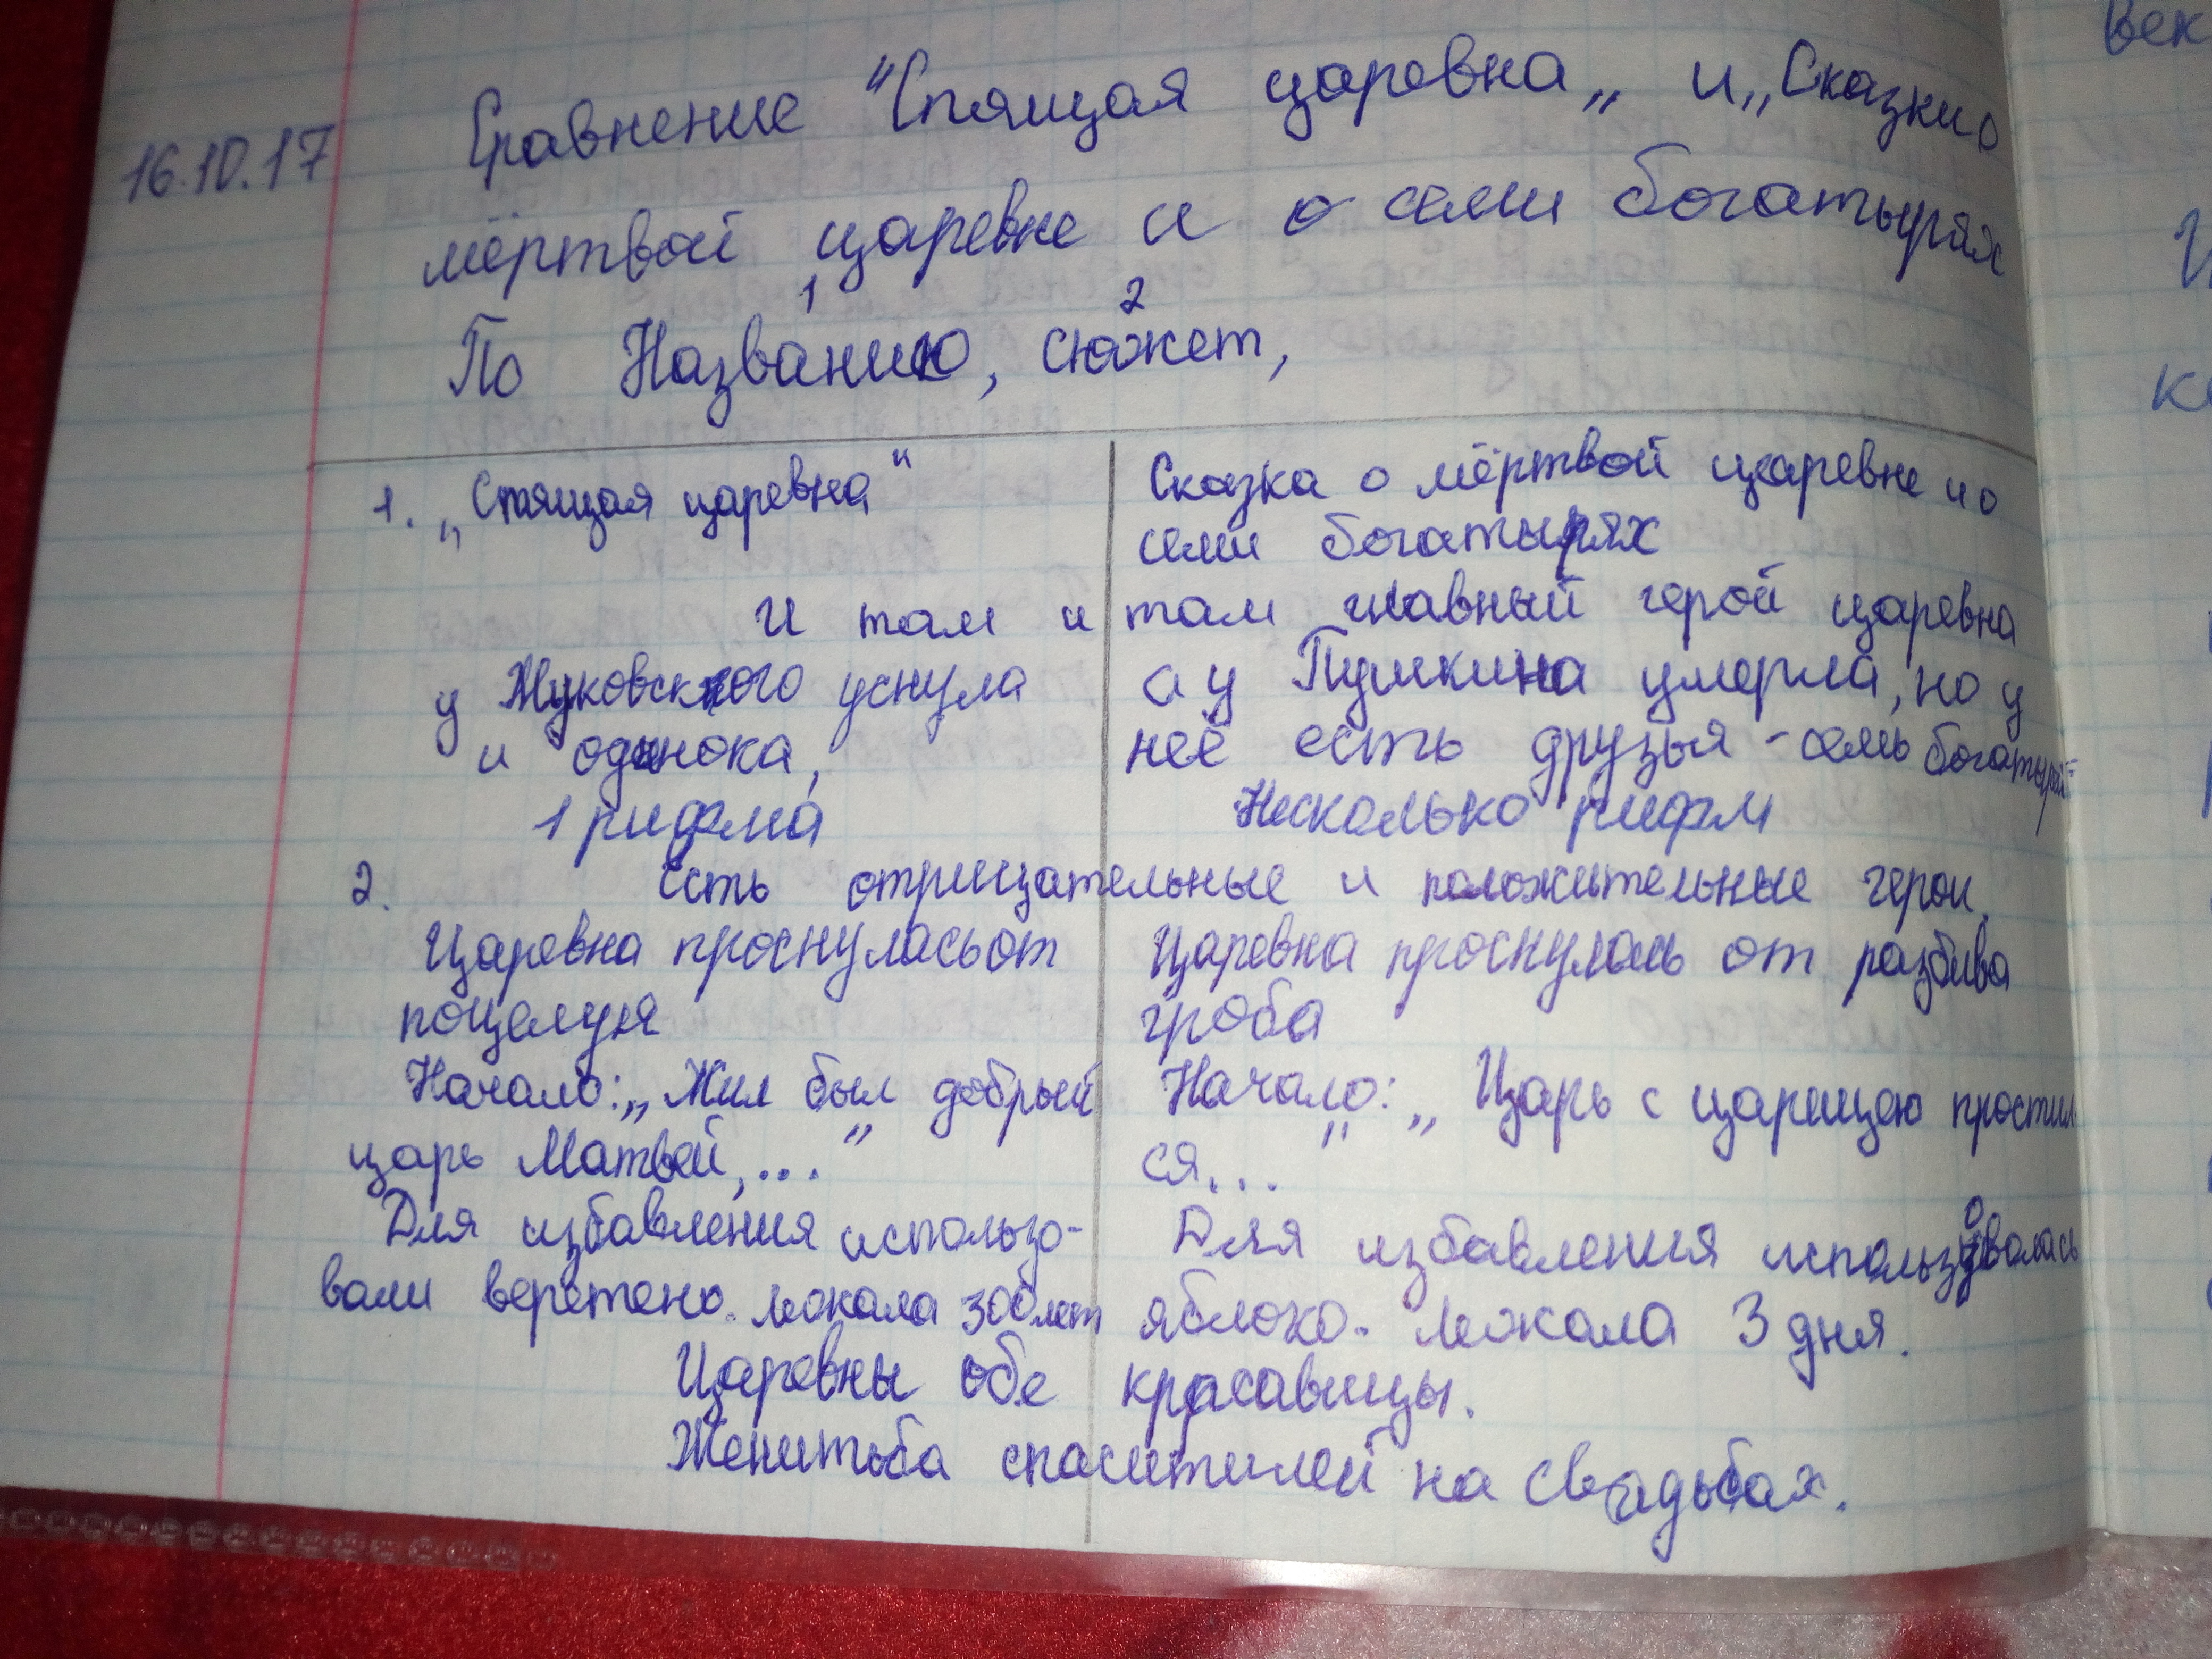 16.10.17
Сравнение "Спящая царевна„ и „Сказки о
мёртвой царевне и о семи богатырях
1 2
По Названию, сюжет,
1. „Спящая царевна"
Сказка о мёртвой царевне и о
семи богатырях
И там и там главный герой царевна
у Жуковского уснула
и одинока,
1 рифма
а у Пушкина умерла, но у
неё есть друзья - семь богатырей
Несколько рифм
2. Есть отрицательные и положительные герои.
Царевна проснулась от
поцелуя
Начало: „Жил был добрый
царь Матвей,..."
Для избавления использо-
вали веретено. лежала 300 лет
Царевна проснулась от разбива
гроба
Начало: „Царь с царицею простил
ся..."
Для избавления использовалась
яблоко. Лежала 3 дня.
Царевны обе красавицы.
Женитьба спасителей на свадьбах.
век